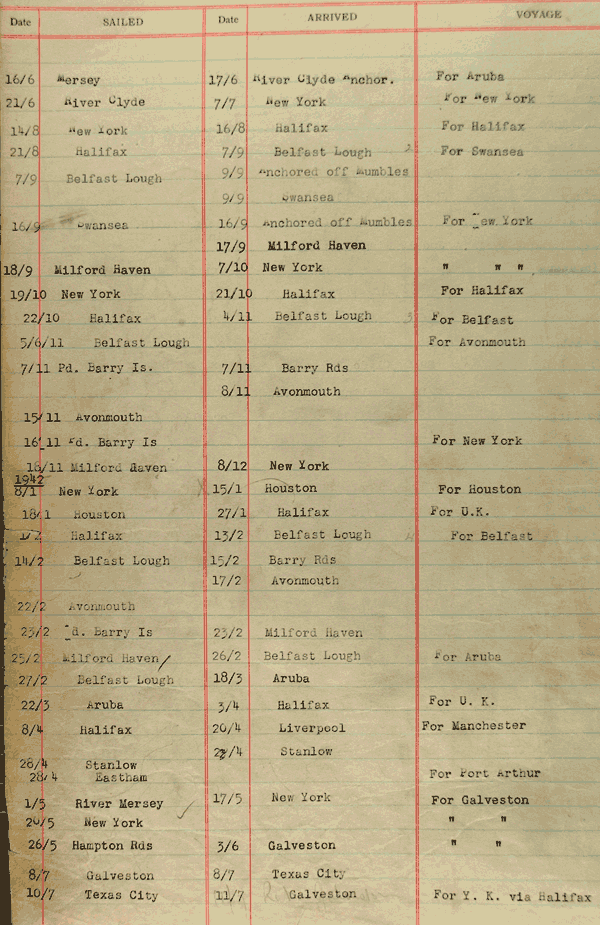 Date SAILED Date ARRIVED VOYAGE
16/6 Mersey 17/6 River Clyde Anchor. For Aruba
21/6 River Clyde 7/7 New York For New York
14/8 New York 16/8 Halifax For Halifax
21/8 Halifax 7/9 Belfast Lough For Swansea
7/9 Belfast Lough 9/9 Anchored off Mumbles
9/9 Swansea
16/9 Swansea 16/9 Anchored off Mumbles For New York
17/9 Milford Haven
18/9 Milford Haven 7/10 New York " " "
19/10 New York 21/10 Halifax For Halifax
22/10 Halifax 4/11 Belfast Lough For Belfast
5/6/11 Belfast Lough For Avonmouth
7/11 Pd. Barry Is. 7/11 Barry Rds
8/11 Avonmouth
15/11 Avonmouth
16/11 Pd. Barry Is For New York
18/11 Milford Haven 8/12 New York
1942
8/1 New York 15/1 Houston For Houston
18/1 Houston 27/1 Halifax For U.K.
1/2 Halifax 13/2 Belfast Lough For Belfast
14/2 Belfast Lough 15/2 Barry Rds
17/2 Avonmouth
22/2 Avonmouth
23/2 Pd. Barry Is 23/2 Milford Haven
25/2 Milford Haven/ 26/2 Belfast Lough For Aruba
27/2 Belfast Lough 18/3 Aruba
22/3 Aruba 3/4 Halifax For U. K.
8/4 Halifax 20/4 Liverpool For Manchester
/4 Stanlow
28/4 Stanlow
28/4 Eastham For Port Arthur
1/5 River Mersey 17/5 New York For Galveston
20/5 New York " "
26/5 Hampton Rds 3/6 Galveston " "
8/7 Galveston 8/7 Texas City
10/7 Texas City 11/7 Galveston For Y. K. via Halifax